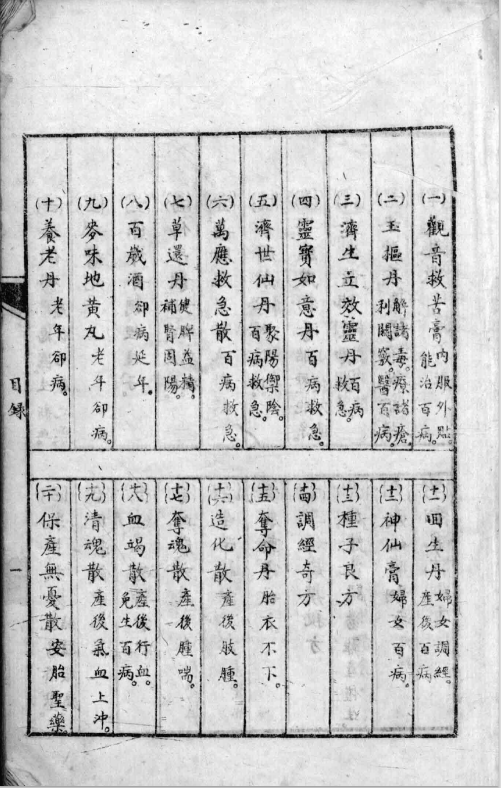 (一)觀音救苦膏 內服外貼。能治百病。
(二)玉樞丹 解諸毒。療諸瘡。利關竅。醫百病。
(三)濟生立效靈丹 百病救急。
(四)靈寶如意丹 百病救急。
(五)濟世仙丹 聚陽禦陰。百病救急。
(六)萬應救急散 百病救急。
(七)草還丹 健脾益精。補腎固陽。
(八)百歲酒 卻病延年。
(九)麥味地黃丸 老年卻病。
(十)養老丹 老年卻病。
(十一)回生丹 婦女調經。產後百病。
(十二)神仙膏 婦女百病。
(十三)種子良方
(十四)調經奇方
(十五)奪命丹 胎衣不下。
(十六)造化散 產後肢腫。
(十七)奪魂散 產後腫喘。
(十八)血竭散 產後行血。免生百病。
(十九)清魂散 產後氣血上沖。
(二十)保產無憂散 安胎聖藥
目錄
一